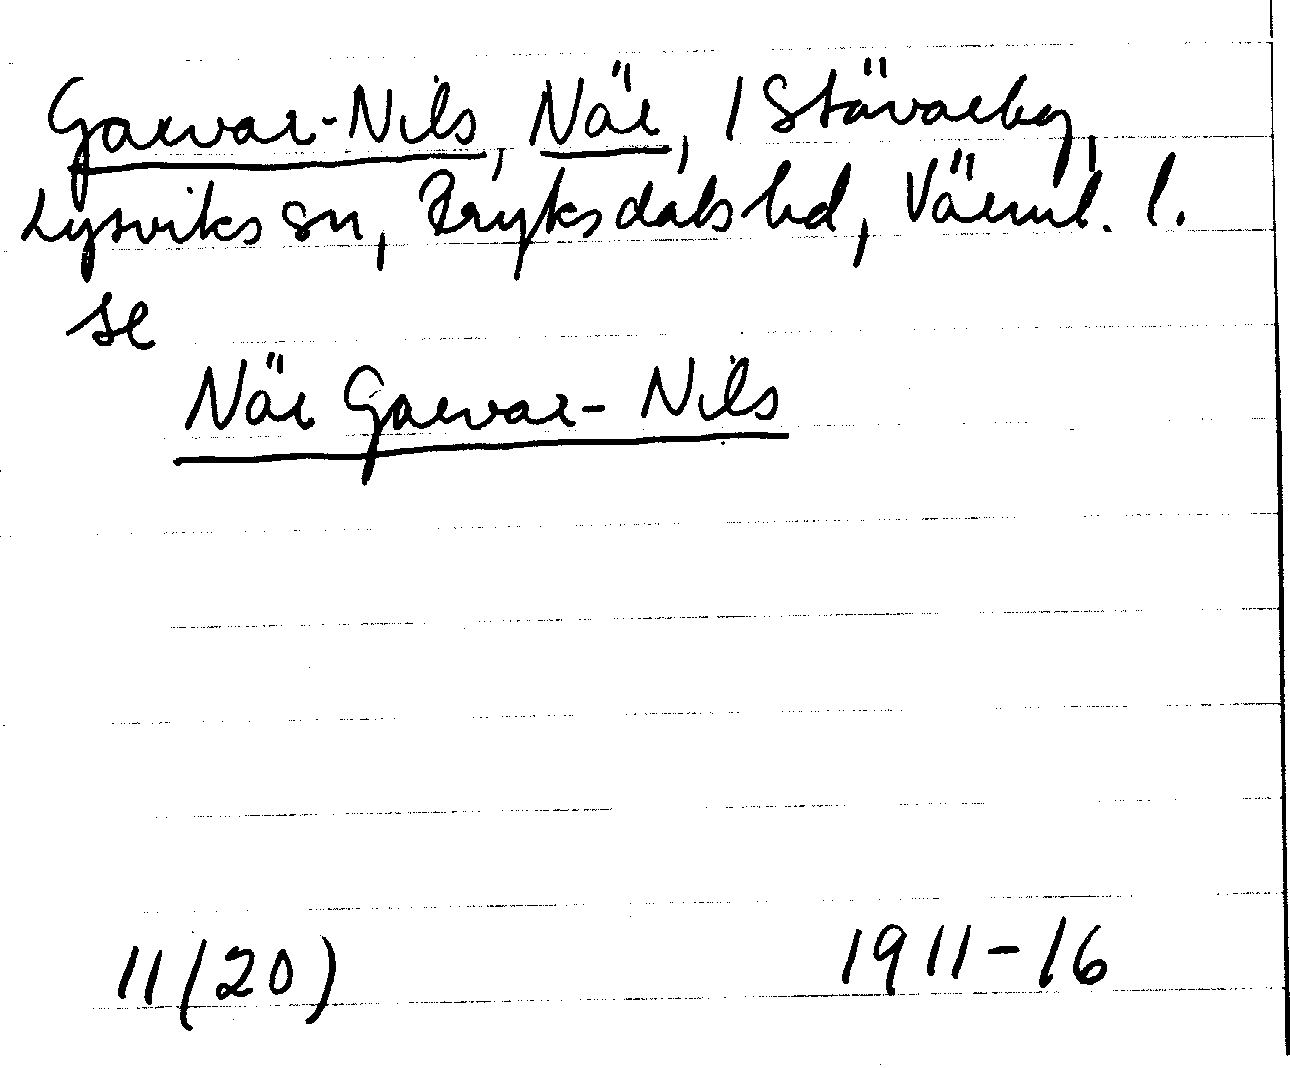 Garvar-Nils, När, / Stävarby,
Lysviks sn, Fryksdals hd, Värml. l.
se
När Garvar- Nils
11(20) 1911-16